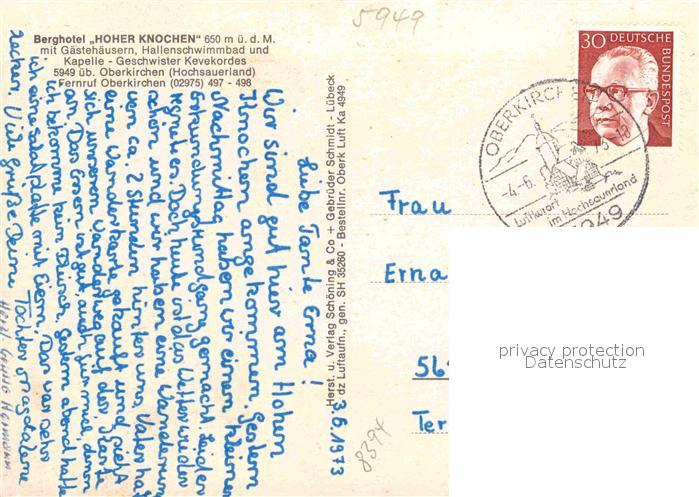 5949
Berghotel „HOHER KNOCHEN" 650 m ü. d. M.
mit Gästehäusern, Hallenschwimmbad und
Kapelle - Geschwister Kevekordes
5949 üb. Oberkirchen (Hochsauerland)
Fernruf Oberkirchen (02975) 497 - 498
Herst. u. Verlag Schöning & Co + Gebrüder Schmidt - Lübeck
dz Luftaufn., gen. SH 35260 - Bestellnr. Oberk Luft Ka 4949
3.6.1973
Liebe Tante Erna!
Wir sind gut hier am Hohen
Knochen angekommen. Gestern
Nachmittag haben wir einen kleinen
Erkundungsrundgang gemacht. Leider
regnet es. Doch heute ist das Wetter wieder
schön und wir haben eine Wanderung
von ca. 2 Stunden hinter uns. Vater hat
eine Wanderkarte gekauft und sieht
sich unseren Wanderweg auf der Karte
an. Das Essen ist gut, auch für mich, denn
ich bekomme kein Fleisch. Gestern abend hatte
ich eine Salatplatte mit Eiern. Das war sehr
lecker. Viele Grüße Deine
Tochter Magdalene
Herzl. Grüße Hermann
30 DEUTSCHE
BUNDESPOST
OBERKIRCHEN
-4.-6.
Luftkurort
im Hochsauerland
5949
Frau
Erna
privacy protection
Datenschutz
8394